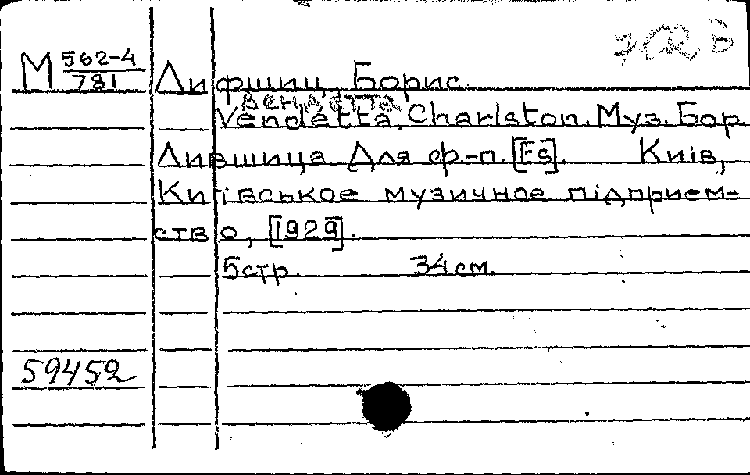 М 562-4
781
Лифшиц, Борис.
Вендетта
Vendetta. Charlston. Муз. Бор.
Лившица. Для ф-п. [Es]. Київ,
Київське музичное підприєм-
ство, [1929].
5 стр. 34 см.
59452